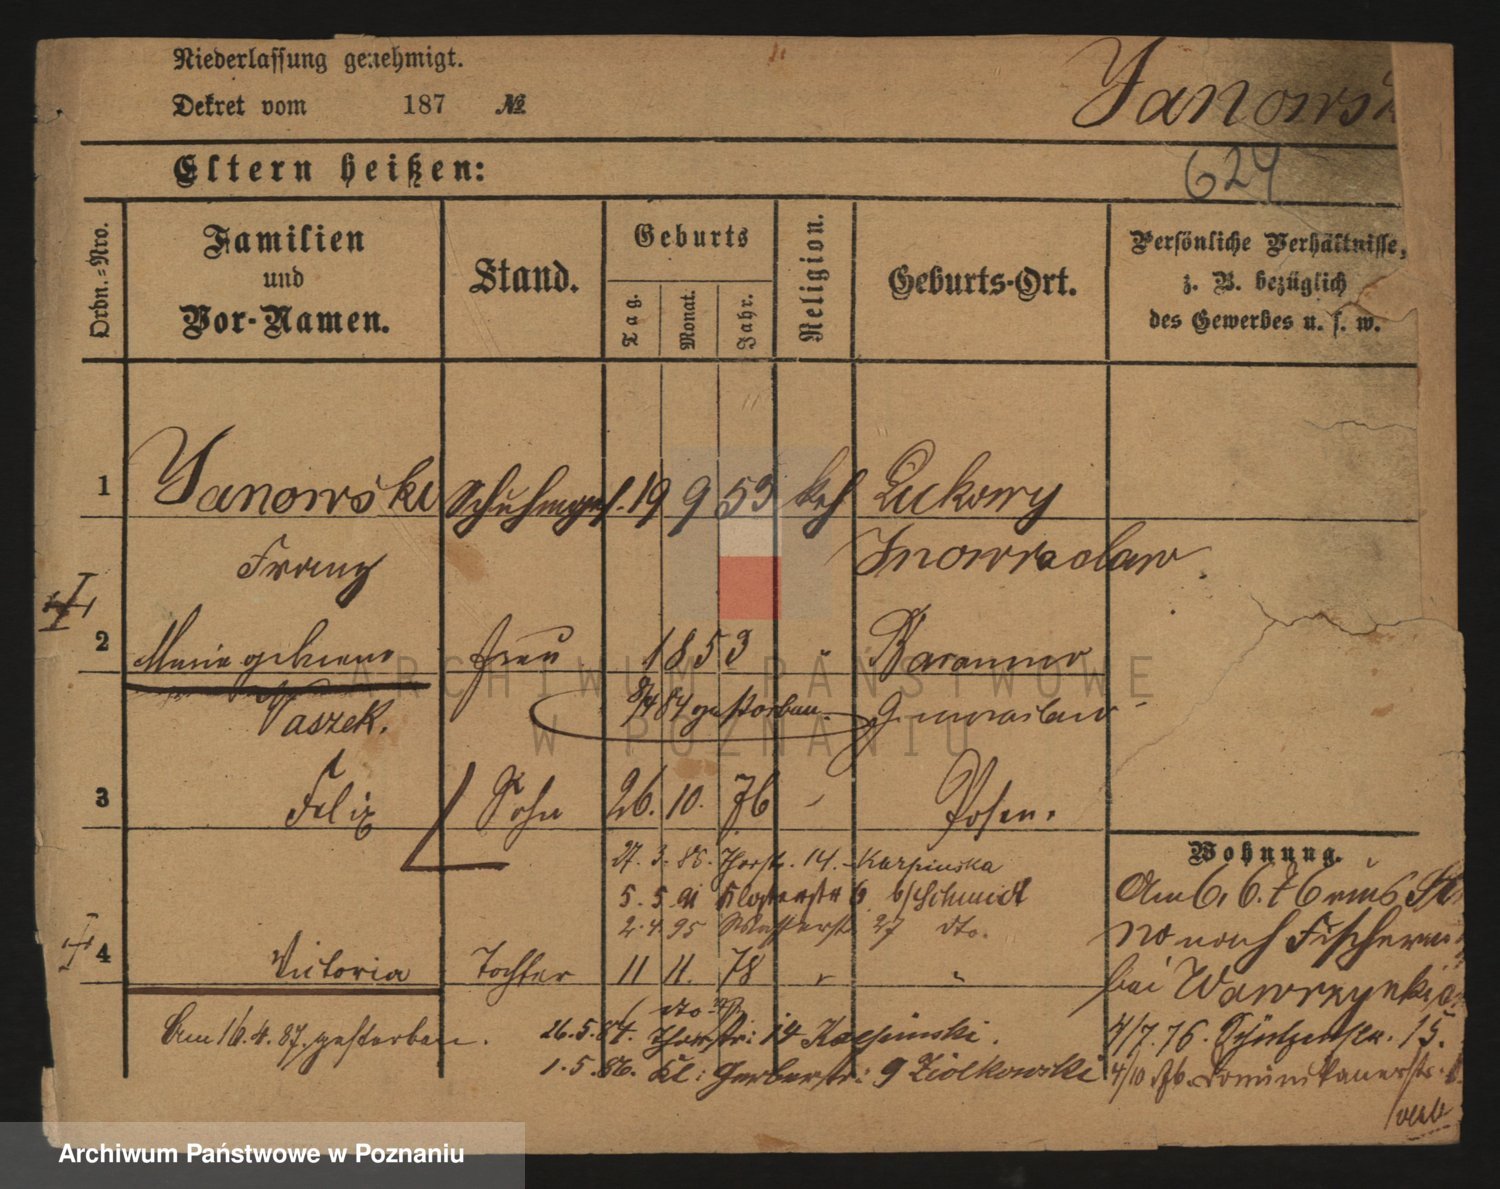 Niederlassung genehmigt.
Dekret vom 187 №
Janowsk
624
Eltern heißen:
Ordn.-Nro.
Familien
und
Vor-Namen.
Stand.
Geburts
Tag.
Monat.
Jahr.
Religion.
Geburts-Ort.
Persönliche Verhältnisse,
z. B. bezüglich
des Gewerbes u. s. w.
1 Janowski Schuhmges. 19 9 53 kth
Franz Inowraclaw
2 Marie geborene Frau 1853 "
Vaszek. 84 gestorben.
3 Felix Sohn 26. 10. 76 Posen.
27. 3. 86. Thorstr. 14. Karpinska
5. 5. 91 Klosterstr 6 b/Schmidt
2. 4. 95 27 dto.
4 Victoria Tochter 11 11. 78 " "
dto
Am 16.4.87. gestorben. 26.5.84. Thorstr: 14 Karpinski.
1.5.86. Kl: Gerberstr: 9 Ziolkowski
Wohnung.
Am 6.6.76 aus
No nach Fischerei
bei Wawrzynkie
4/7.76. Schützenstr. 15.
4/10 76. Dominikanerstr.
Archiwum Państwowe
w Poznaniu
Archiwum Państwowe w Poznaniu